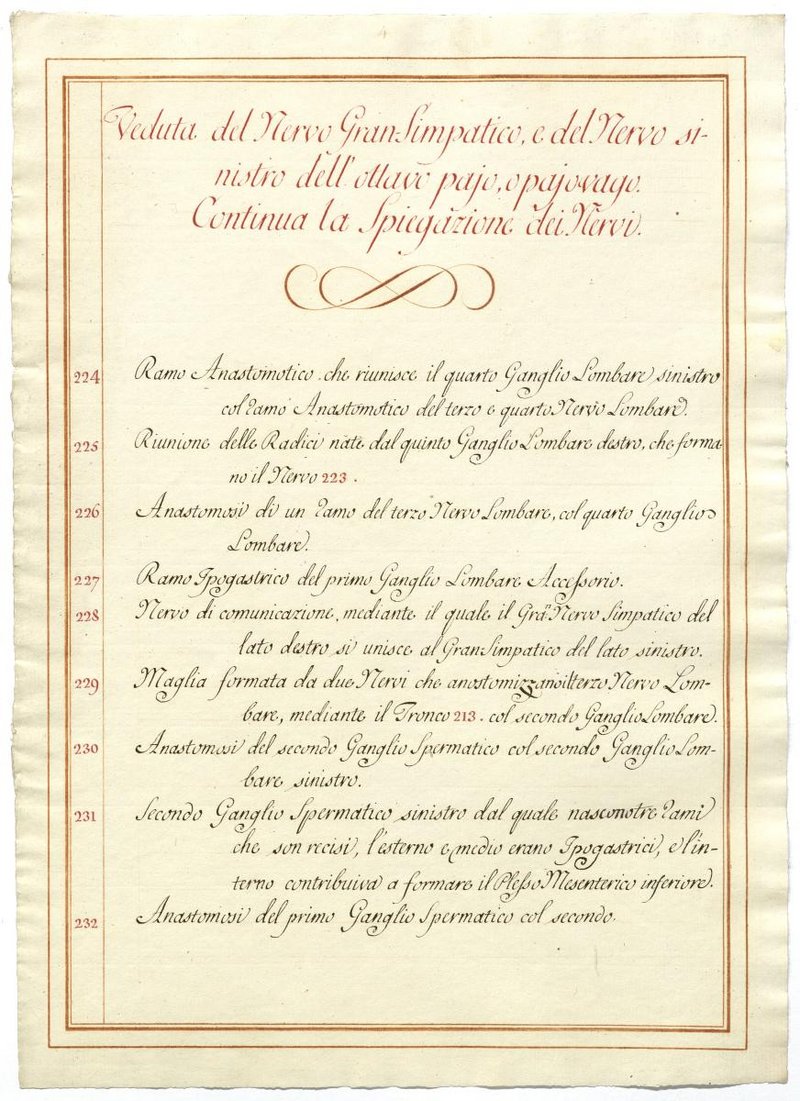 Veduta del Nervo Gran-Simpatico, e del Nervo si-
nistro dell' ottavo pajo, o pajo vago.
Continua la Spiegazione dei Nervi.
224 Ramo Anastomotico che riunisce il quarto Ganglio Lombare sinistro
col ramo Anastomotico del terzo e quarto Nervo Lombare.
225 Riunione delle Radici nate dal quinto Ganglio Lombare destro, che forma
no il Nervo 223.
226 Anastomosi di un ramo del terzo Nervo Lombare, col quarto Ganglio
Lombare.
227 Ramo Ipogastrico del primo Ganglio Lombare Accessorio.
228 Nervo di comunicazione, mediante il quale il Gran Nervo Simpatico del
lato destro si unisce al Gran-Simpatico del lato sinistro.
229 Maglia formata da due Nervi che anostomizzano il terzo Nervo Lom-
bare, mediante il Tronco 213. col secondo Ganglio Lombare.
230 Anastomosi del secondo Ganglio Spermatico col secondo Ganglio Lom-
bare sinistro.
231 Secondo Ganglio Spermatico sinistro dal quale nascono tre rami
che son recisi, l'esterno e medio erano Ipogastrici, e l'in-
terno contribuiva a formare il Plesso Mesenterico inferiore.
232 Anastomosi del primo Ganglio Spermatico col secondo.